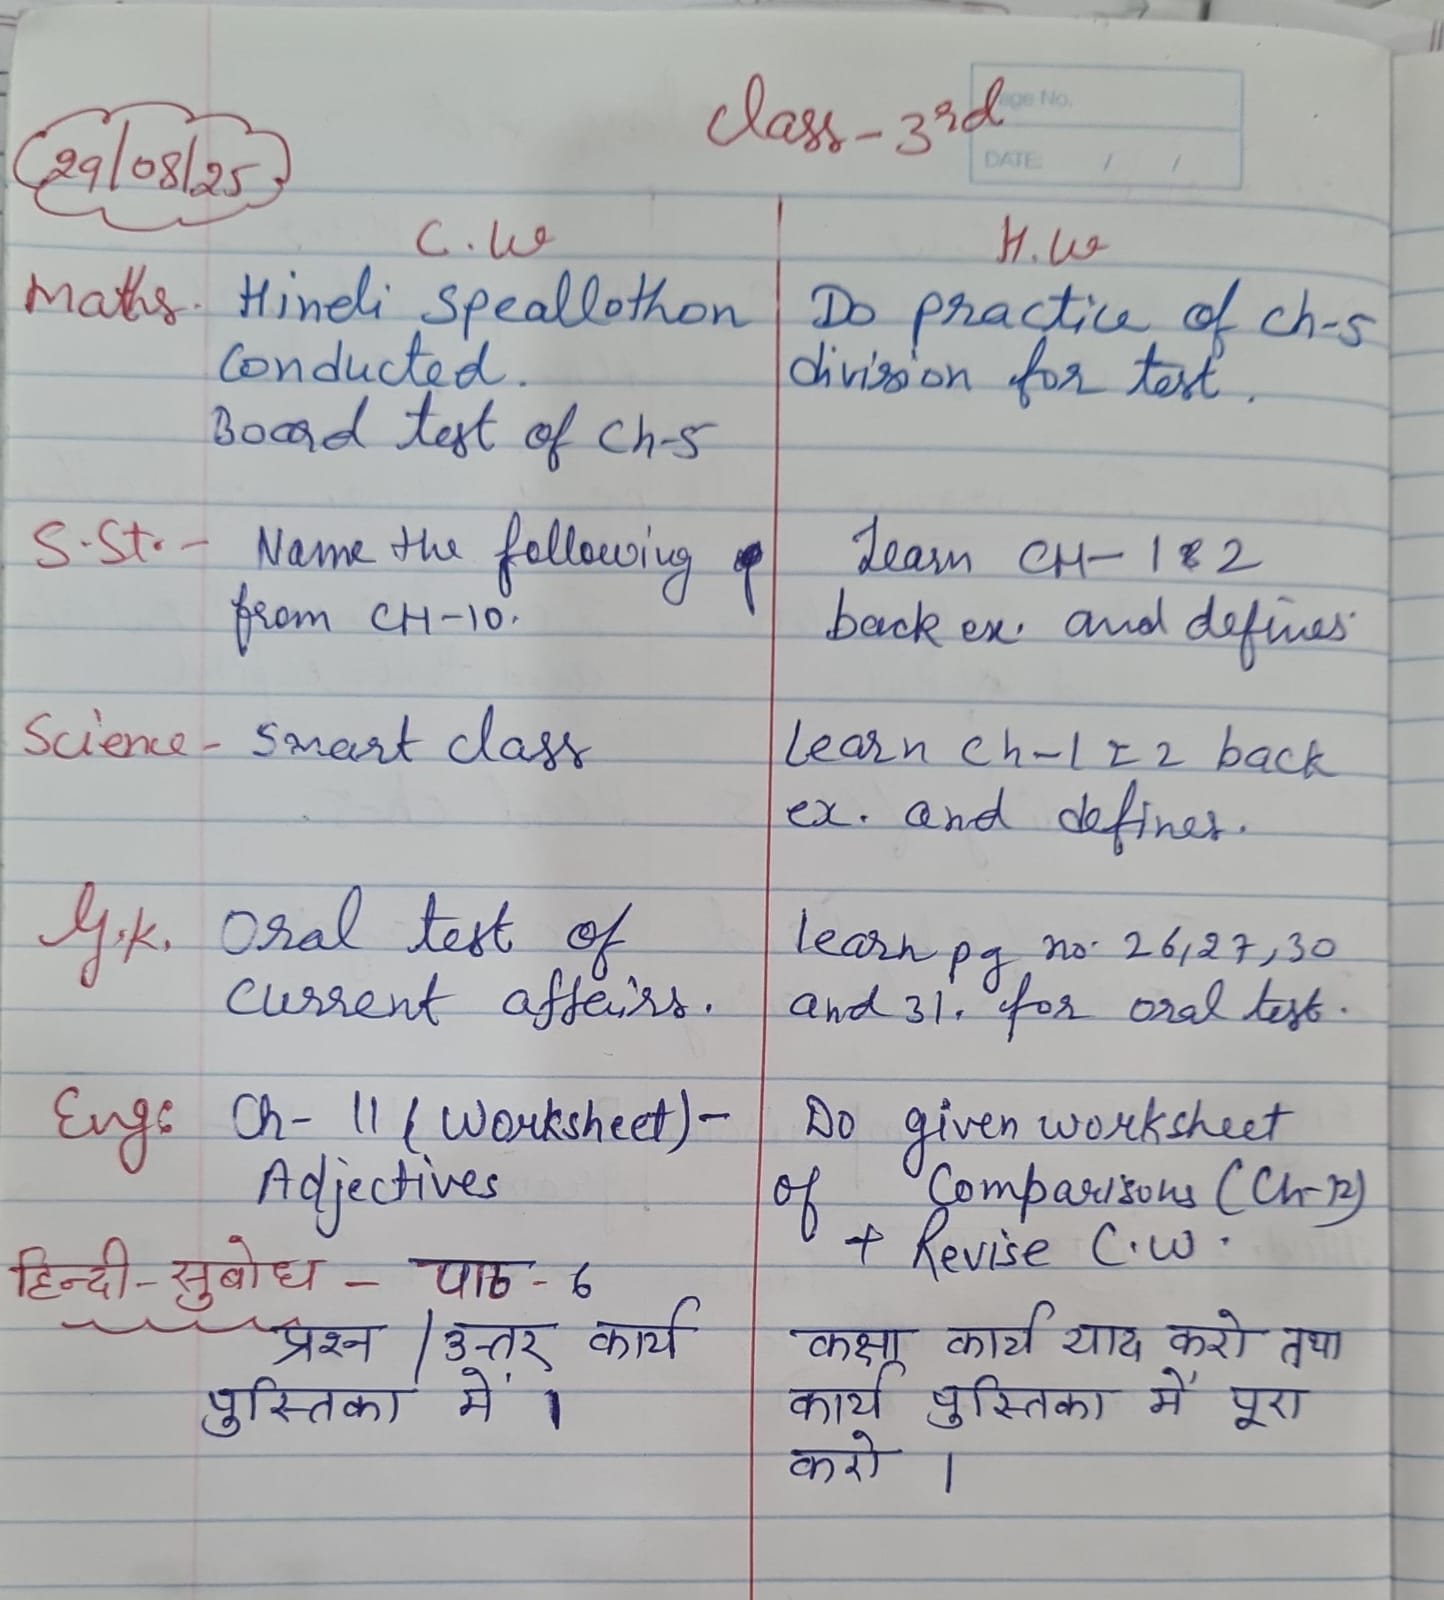 Class-3rd
Page No.
DATE / /
29/08/25
C.W
H.W
Maths. Hindi Speallothon
Conducted.
Board test of Ch-5
Do practice of ch-5
division for test.
S.St. - Name the following
from CH-10.
Learn CH-1 & 2
back ex. and defines.
Science - Smart class
learn ch-1 & 2 back
ex. and defines.
G.K. Oral test of
current affairs.
learn pg no. 26,27,30
and 31. for oral test.
Eng: Ch- 11 (Worksheet)-
Adjectives
Do given worksheet
of Comparisons (Ch-12)
+ Revise C.W.
हिन्दी-सुबोध - पाठ-6
प्रश्न / उत्तर कार्य
पुस्तिका में ।
कक्षा कार्य याद करो तथा
कार्य पुस्तिका में पूरा
करो ।